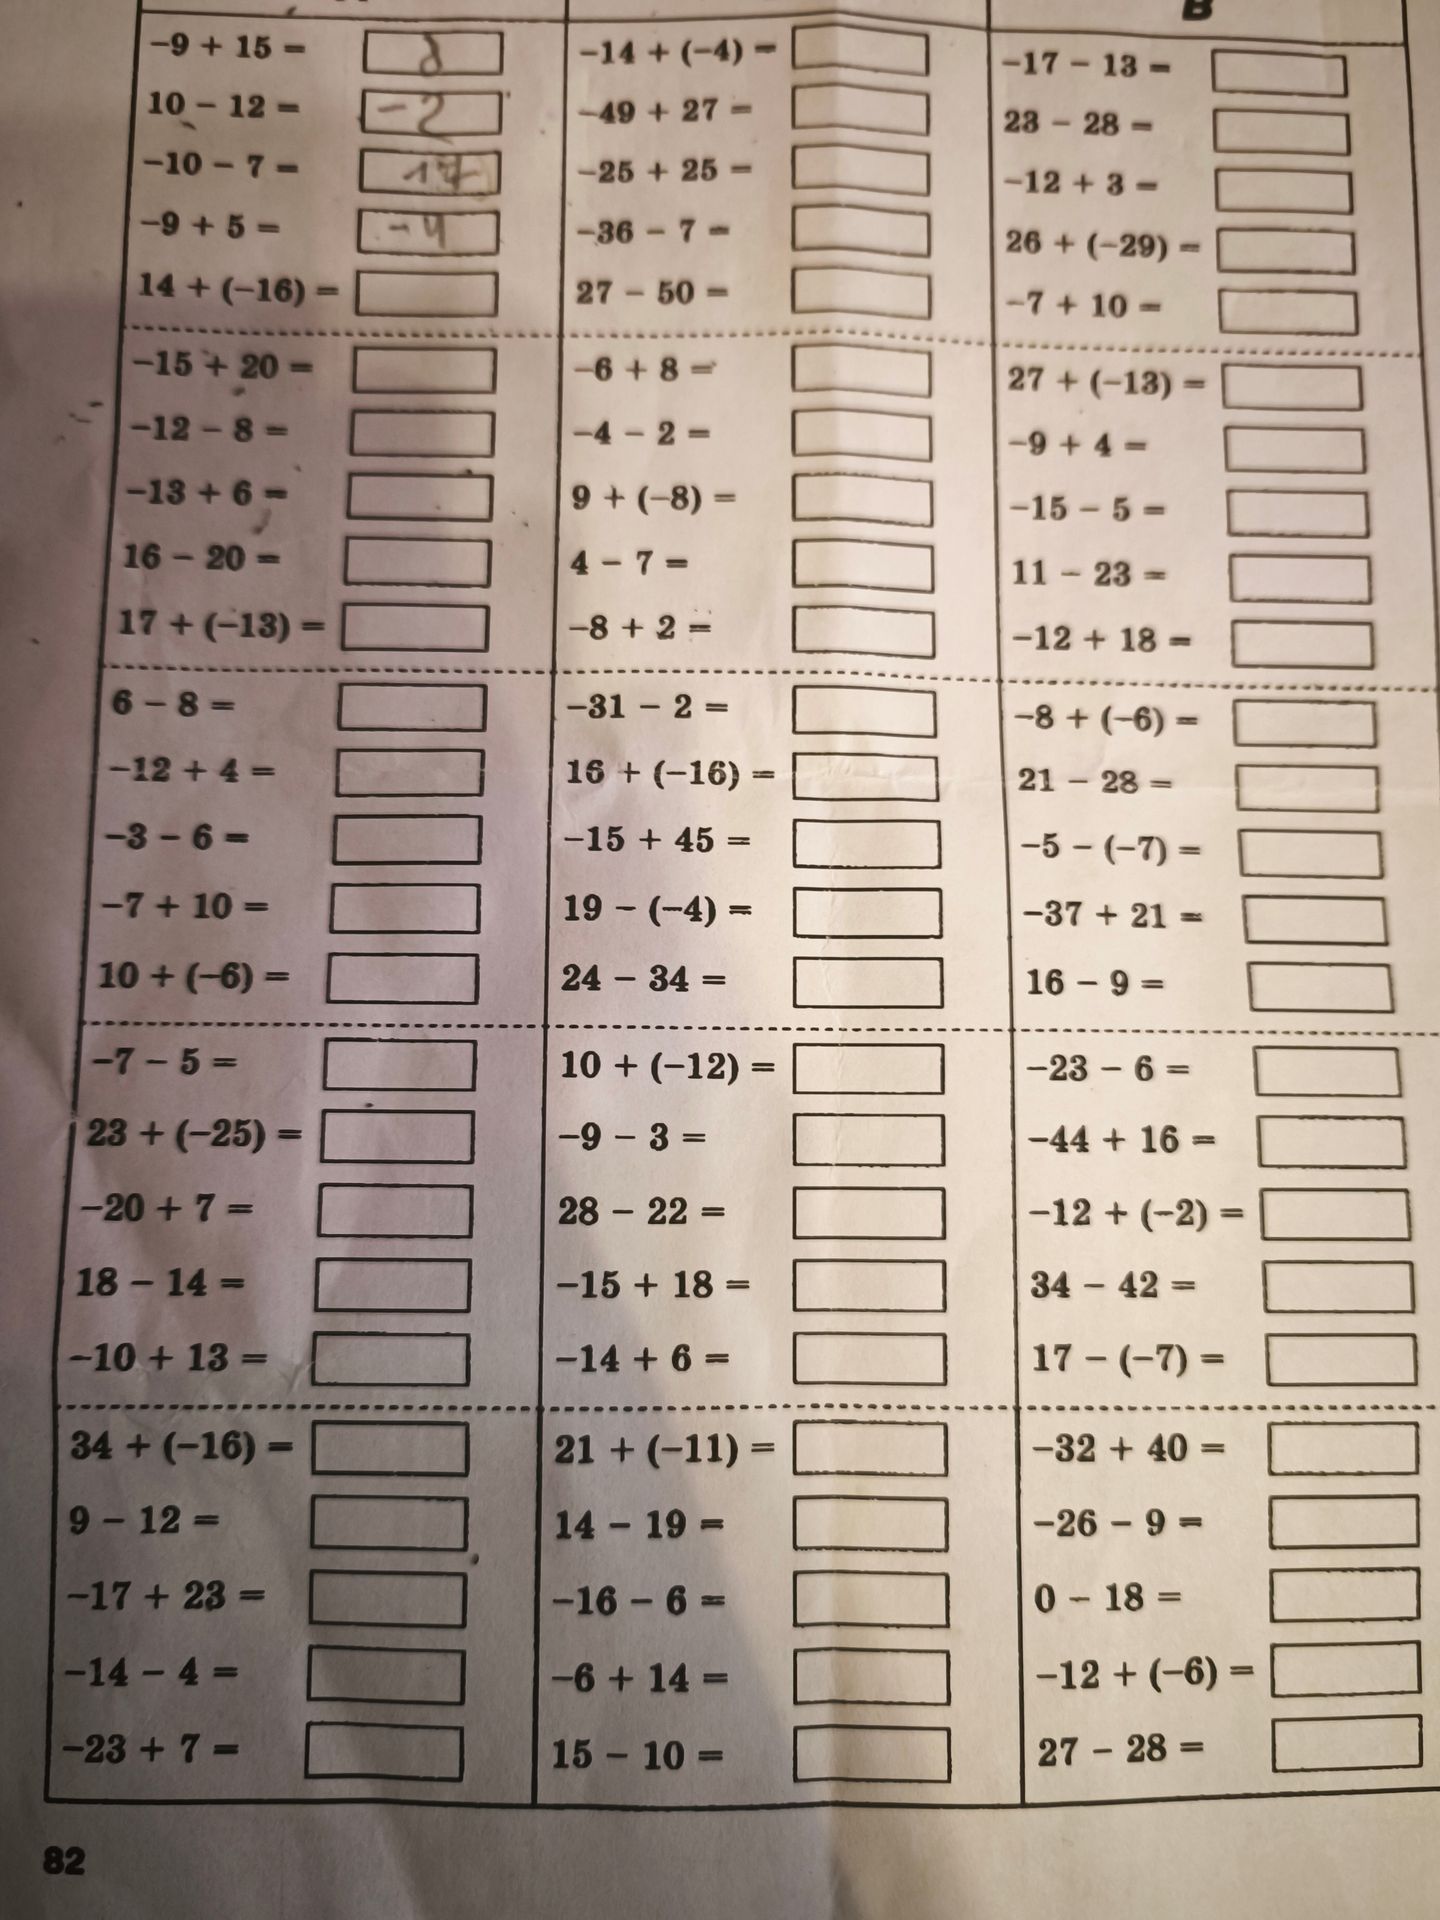 В
-9 + 15 =
10 - 12 = -2
-10 - 7 = -17
-9 + 5 = -4
14 + (-16) =
-15 + 20 =
-12 - 8 =
-13 + 6 =
16 - 20 =
17 + (-13) =
6 - 8 =
-12 + 4 =
-3 - 6 =
-7 + 10 =
10 + (-6) =
-7 - 5 =
23 + (-25) =
-20 + 7 =
18 - 14 =
-10 + 13 =
34 + (-16) =
9 - 12 =
-17 + 23 =
-14 - 4 =
-23 + 7 =
-14 + (-4) =
-49 + 27 =
-25 + 25 =
-36 - 7 =
27 - 50 =
-6 + 8 =
-4 - 2 =
9 + (-8) =
4 - 7 =
-8 + 2 =
-31 - 2 =
16 + (-16) =
-15 + 45 =
19 - (-4) =
24 - 34 =
10 + (-12) =
-9 - 3 =
28 - 22 =
-15 + 18 =
-14 + 6 =
21 + (-11) =
14 - 19 =
-16 - 6 =
-6 + 14 =
15 - 10 =
-17 - 13 =
23 - 28 =
-12 + 3 =
26 + (-29) =
-7 + 10 =
27 + (-13) =
-9 + 4 =
-15 - 5 =
11 - 23 =
-12 + 18 =
-8 + (-6) =
21 - 28 =
-5 - (-7) =
-37 + 21 =
16 - 9 =
-23 - 6 =
-44 + 16 =
-12 + (-2) =
34 - 42 =
17 - (-7) =
-32 + 40 =
-26 - 9 =
0 - 18 =
-12 + (-6) =
27 - 28 =
82